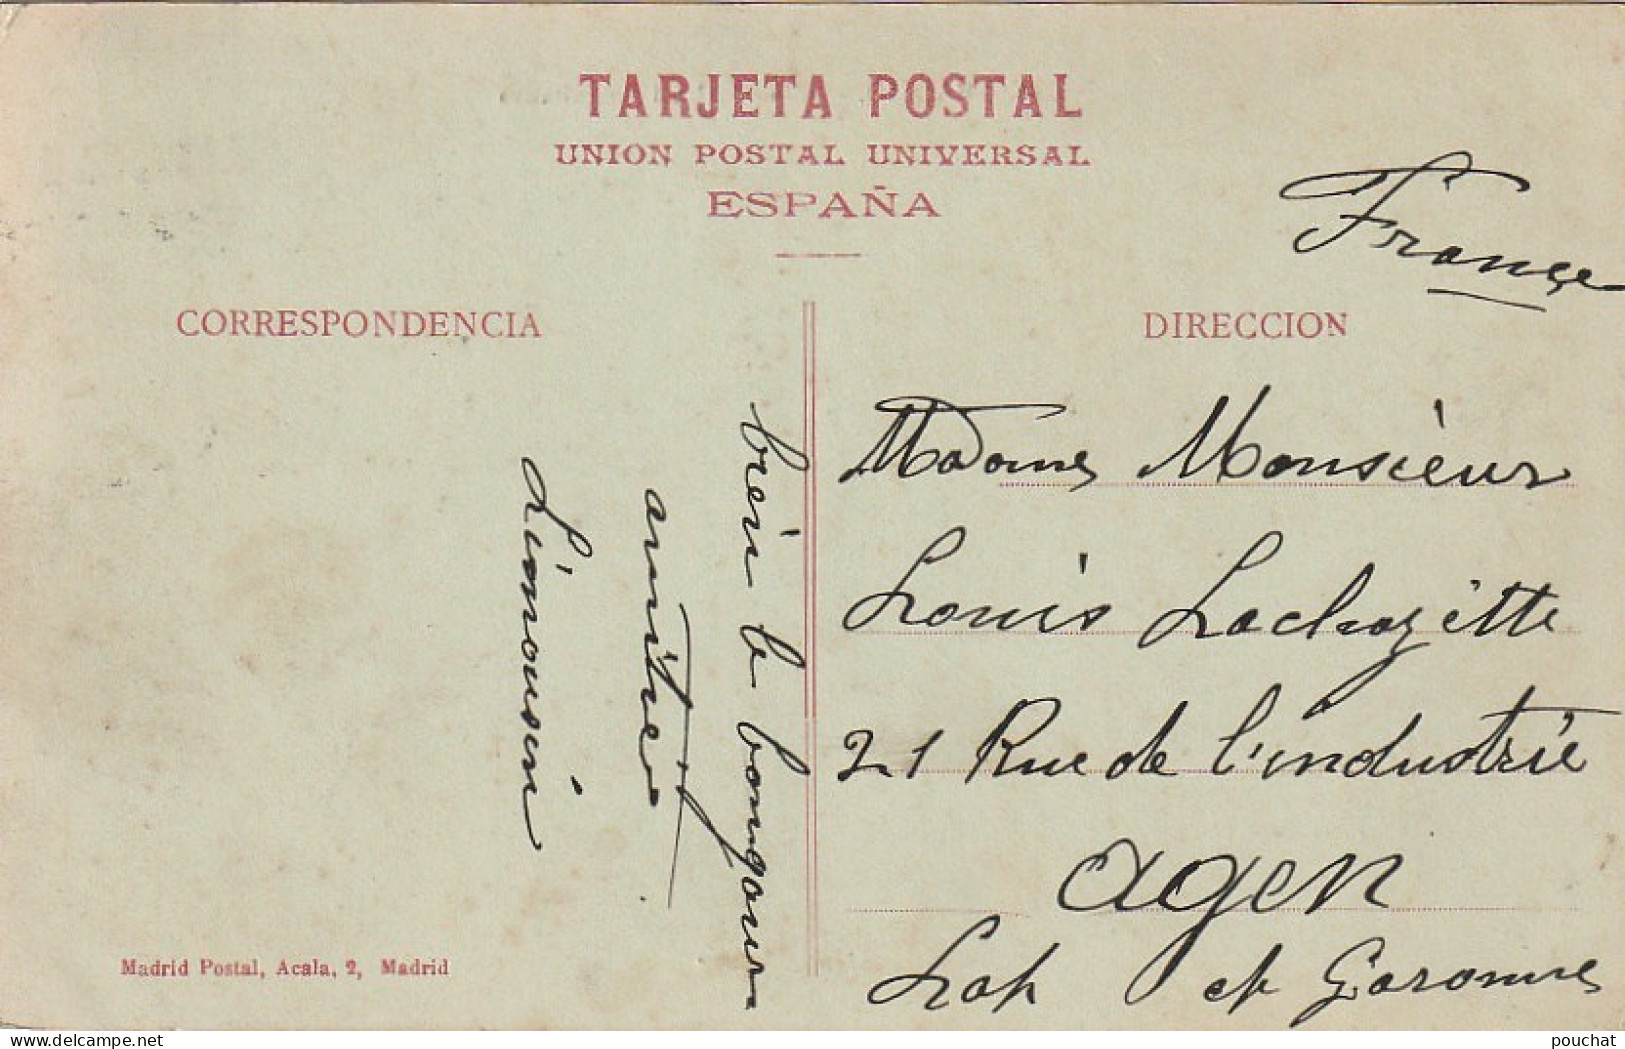 TARJETA POSTAL
UNION POSTAL UNIVERSAL
ESPAÑA
France
CORRESPONDENCIA
DIRECCION
bien le bonjour
amities
Limousin
Madame Monsieur
Louis Lachazette
21 Rue de l'industrie
Agen
Lot et Garonne
Madrid Postal, Acala, 2, Madrid
delcampe.net
pouchat